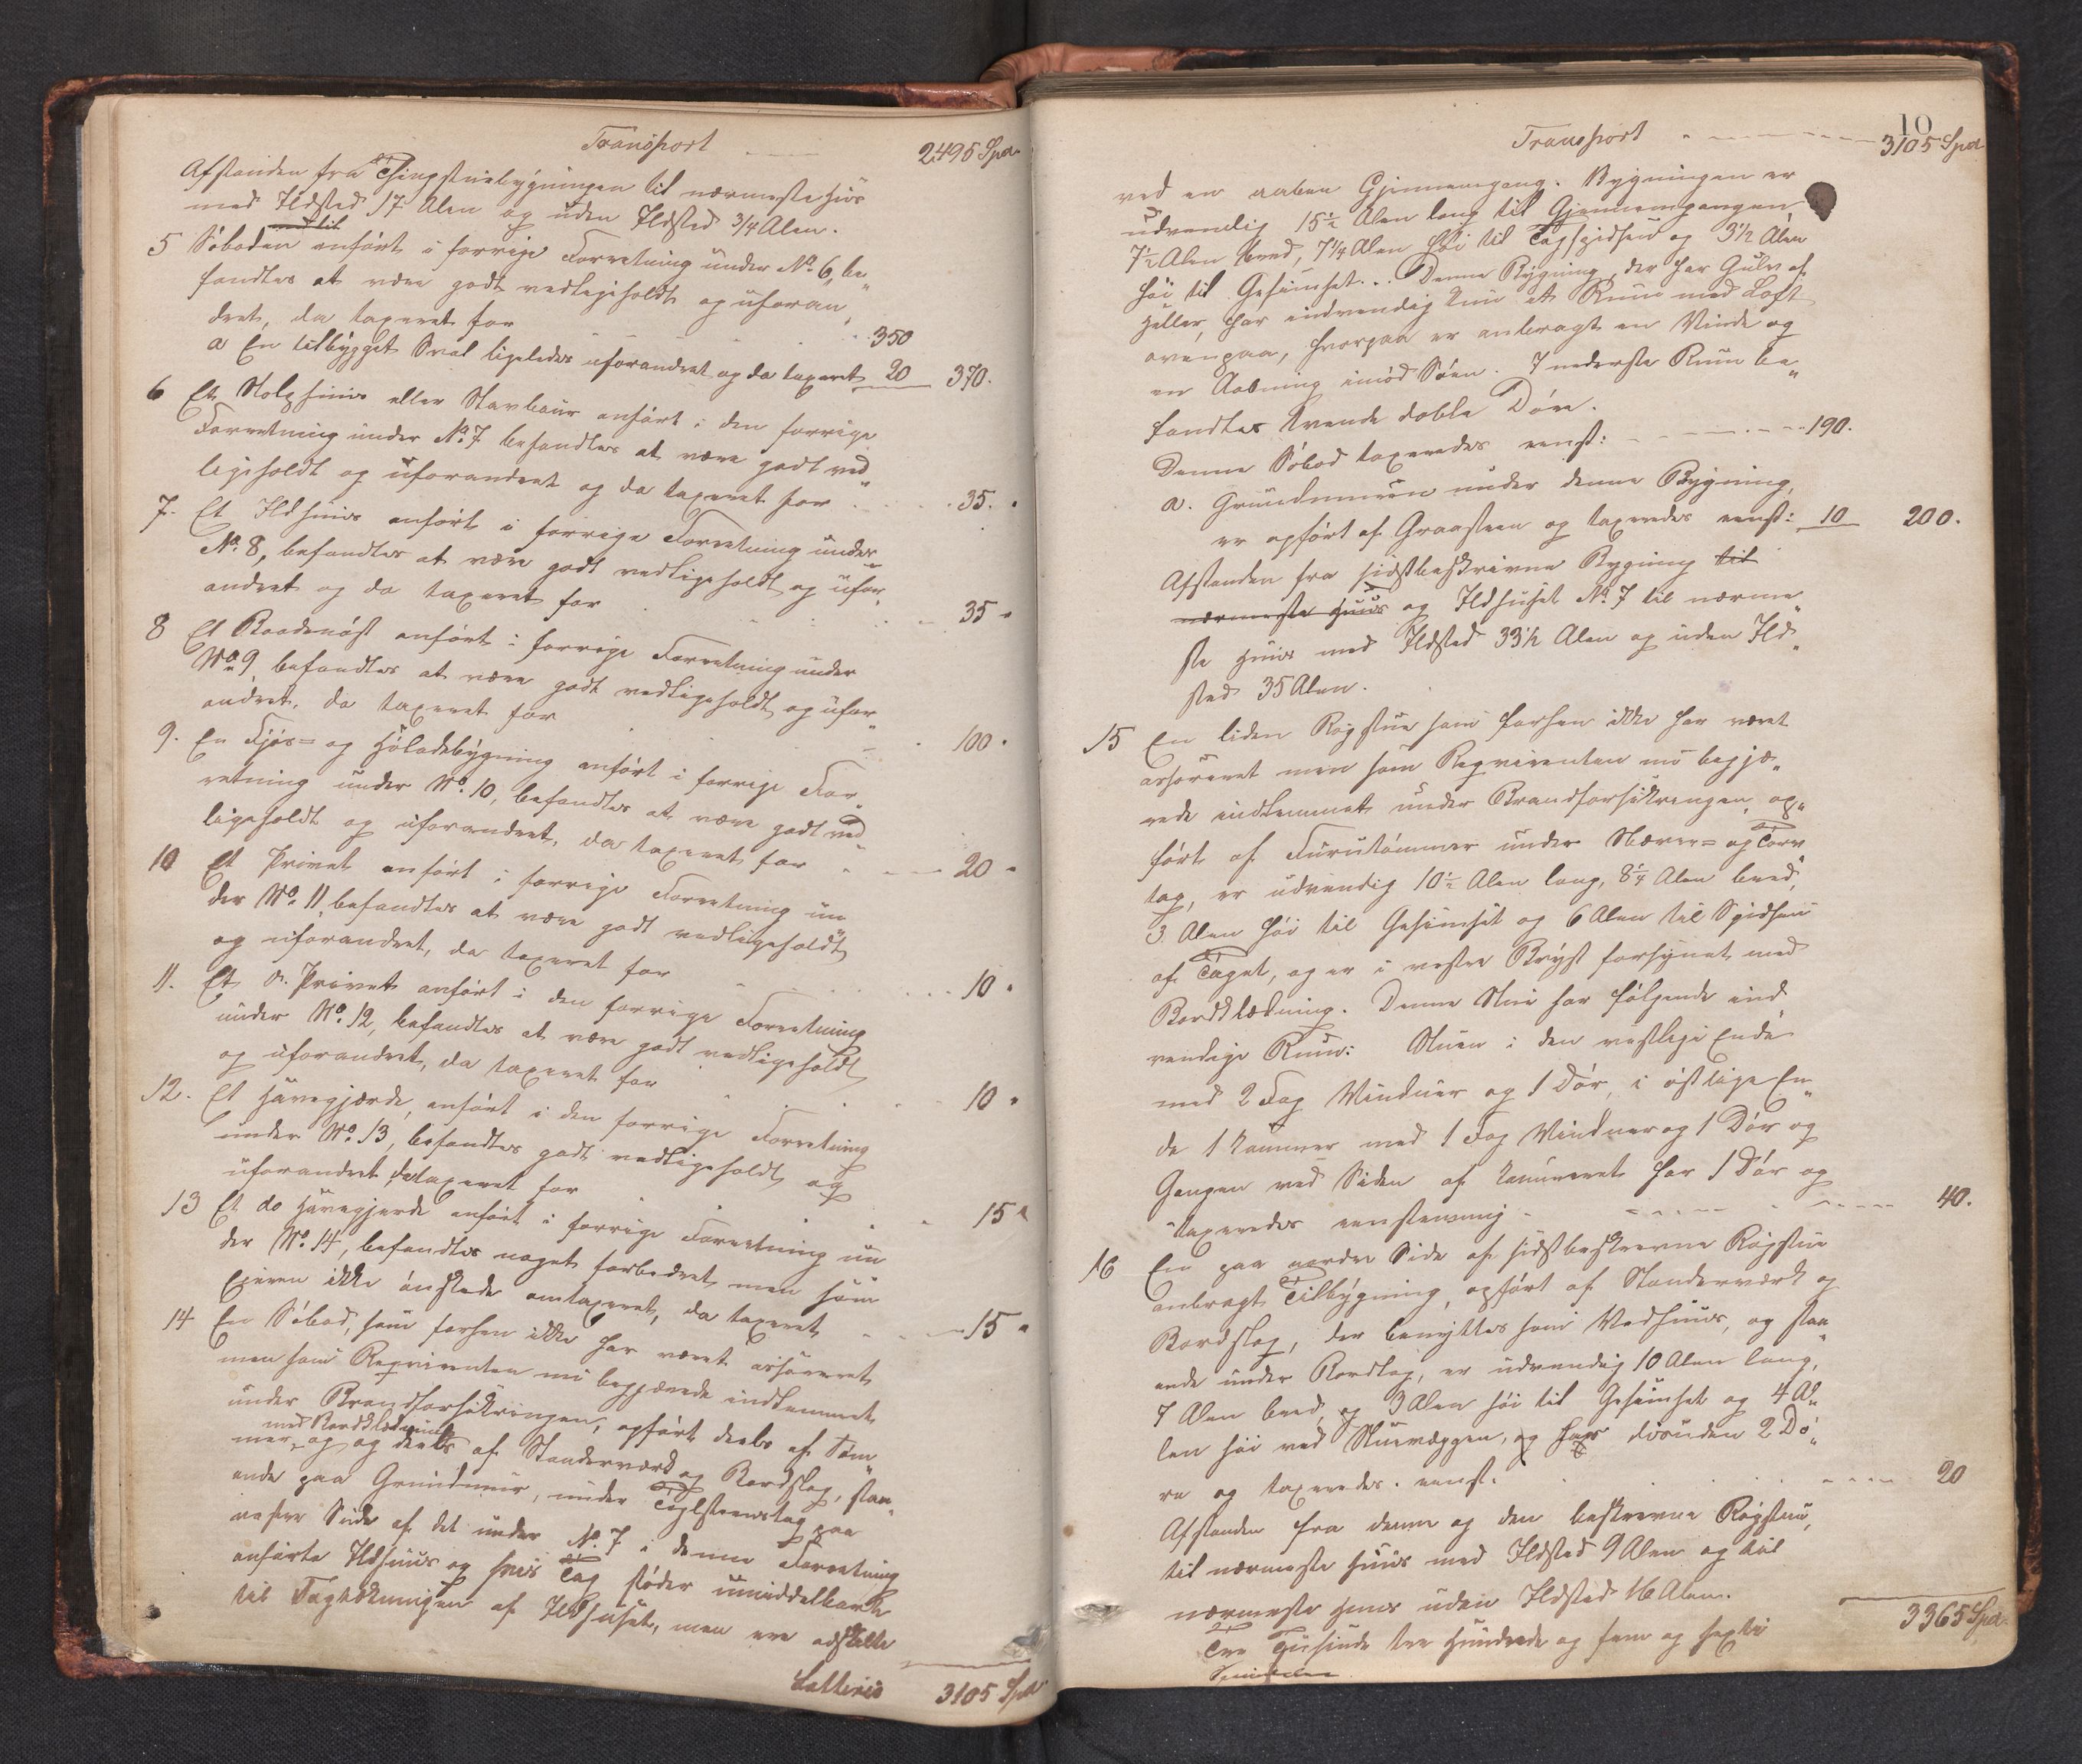 Transport 2495 Spd.
Afstanden fra Thingstuebygningen til nærmeste Huus
med Ildsted 17 Alen og uden Ildsted 3/4 Alen.
5 Søboden anført i forrige Forretning under No. 6, be„
fandtes at være godt vedligeholdt og uforan„
dret, da taxeret for 350
a En tilbygget Sval ligeledes uforandret og da taxeret 20 370.
6 Et Stolphuus eller Stavbuur anført i den forrige
Forretning under No. 7 befandtes at være godt ved„
ligeholdt og uforandret og da taxeret for 35.
7. Et Ildhuus anført i forrige Forretning under
No. 8, befandtes at være godt vedligeholdt og ufor„
andret og da taxeret for 35.
8 Et Baadenøst anført i forrige Forretning under
No. 9, befandtes at være godt vedligeholdt og ufor„
andret, da taxeret for 100.
9. En Fjøs= og Høladebygning anført i forrige For„
retning under No. 10, befandtes at være godt ved„
ligeholdt og uforandret, da taxeret for 20.
10 Et Privet anført i forrige Forretning un„
der No. 11, befandtes at være godt vedligeholdt
og uforandret, da taxeret for 10.
11. Et do. Privet anført i den forrige Forretning
under No. 12, befandtes at være godt vedligeholdt
og uforandret, da taxeret for 10.
12. Et Havegjærde, anført i den forrige Forretning
under No. 13, befandtes godt vedligeholdt og
uforandret, da taxeret for 15.
13 Et do Havegjerde anført i forrige Forretning un
der No. 14, befandtes noget forbedret men som
Eieren ikke ønskede omtaxeret, da taxeret 15.
14 En Søbod, som forhen ikke har været assureret
men som Reqvirenten nu begjærede indlemmet
under Brandforsikringen, opført deels af Tøm„
med Bordklædning
mer, og og deels af Standerværk og Bordslag, staa„
ende paa Grundmuur, under Taglsteenstag paa
vestre Side af det under No. 7 i denne Forretning
anførte Ildhuus og hvis Tag støder umiddelbart
til Tagtækningen af Ildhuset, men ere adskilte
Latteris 3105 Spd.
10
Transport 3105 Spd.
ved en aaben Gjennemgang. Bygningen er
udvendig 15 1/2 Alen lang til Gjennemgangen
7 1/2 Alen bred, 7 1/4 Alen høi til Tagspidsen og 3 1/2 Alen
høi til Gesimset... Denne Bygning, der har Gulv af
Heller, har indvendig kun et Ruum med Loft
ovenpaa, hvorpaa er anbragt en Vinde og
en Aabning imod Søen. I nederste Ruum be„
fandtes tvende doble Døre.
Denne Søbod taxeredes eenst: 190.
a. Grundmuren under denne Bygning,
er opført af Graasteen og taxeredes eenst: 10 200.
Afstanden fra sidstbeskrevne Bygning til
nærmeste Huus og Ildhuset No. 7 til nærme„
ste Huus med Ildsted 33 1/2 Alen og uden Ild„
sted 35 Alen.
15 En liden Røgstue som forhen ikke har været
assureret men som Reqvirenten nu begjæ„
rede indlemmet under Brandforsikringen, op„
ført af Furutømmer under Næver= og Torv
tag, er udvendig 10 1/2 Alen lang, 8 1/4 Alen bred,
3 Alen høi til Gesimset og 6 Alen til Spidsen
af Taget, og er i vestre Bryst forsynet med
Bordklædning. Denne Stue har følgende ind„
vendige Ruum: Stuen i den vestlige Ende
med 2 Fag Vinduer og 1 Dør, i østlige En„
de 1 Kammer med 1 Fag Vinduer og 1 Dør og
Gangen ved Siden af Kammeret har 1 Dør og
taxeredes eenstemmig 40.
16 En paa nordre Side af sidstbeskrevne Røgstue
anbragt Tilbygning, opført af Standerværk og
Bordslag, der benyttes som Vedhuus, og staa„
ende under Bordtag, er udvendig 10 Alen lang,
7 Alen bred, og 3 Alen høi til Gesimset og 4 A„
len høi ved Stuevæggen, og har desuden 2 Dø„
re og taxeredes. eenst. 20
Afstanden fra denne og den beskrevne Røgstue,
til nærmeste Huus med Ildsted 9 Alen og til
nærmeste Huus uden Ildsted 16 Alen.
3365 Spd.
Tre Tusinde tre Hundrede og fem og sexti